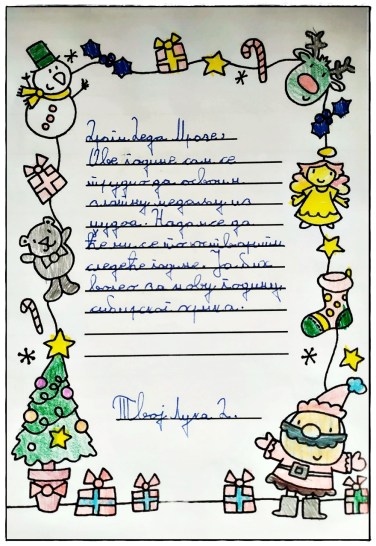 Драги Деда Мразе,
Ове године сам се
трудио да освоим
златну медаљу из
џудоа. Надам се да
ће ми се то остварити
следеће године. Ја бих
волео за нову годину
сибирског хрчка.
Твој Лука 2.